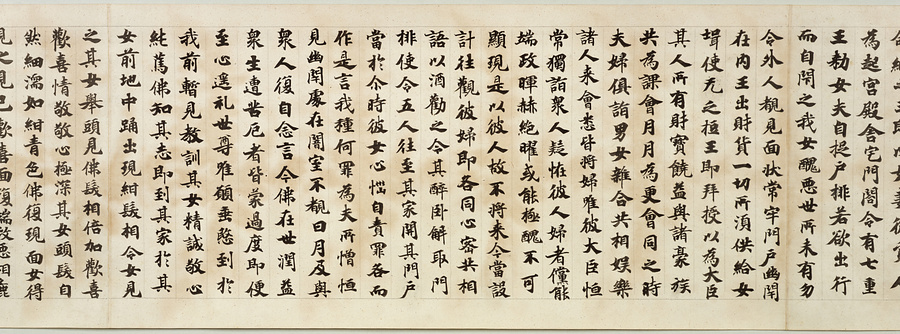 為起宮殿舍宅門閤令有七重
王勅女夫自捉戶排若欲出行
而自閇之我女醜惡世所未有勿
令外人覩見面狀常牢門戶幽閇
在內王出財貨一切所須供給女
壻使充乏短王即拜授以為大臣
其人所有財寶饒益與諸豪族
共為課會月月為更會同之時
夫婦俱詣男女雜合共相娛樂
諸人来會悉皆將婦唯彼大臣恒
常獨詣衆人疑恠彼人婦者儻能
端政暉赫絶曜或能極醜不可
顯現是以彼人故不將来今當設
計往觀彼婦即各同心密共相
語以酒勸之令其醉卧解取門
排使令五人往至其家開其門戶
當於尒時彼女心惱自責罪各而
作是言我種何罪為夫所憎恒
見幽閇處在闇室不覩日月及與
衆人復自念言今佛在世潤益
衆生遭苦厄者皆蒙過度即便
至心遥礼世尊唯願垂愍到於
我前暫見教訓其女精誠敬心
純篤佛知其志即到其家於其
女前地中踊出現紺髮相令女見
之其女舉頭見佛髮相倍加歡喜
歡喜情敬敬心極深其女頭髮自
然細濡如紺青色佛復現面女得
見之見已歡喜面復端政惡相麁